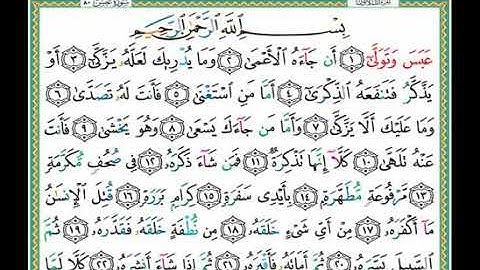 سُورَةُ عَبَسَ ٨٠
بِسْمِ اللَّهِ الرَّحْمَٰنِ الرَّحِيمِ
عَبَسَ وَتَوَلَّىٰٓ ١ أَن جَآءَهُ ٱلْأَعْمَىٰ ٢ وَمَا يُدْرِيكَ لَعَلَّهُۥ يَزَّكَّىٰٓ ٣ أَوْ
يَذَّكَّرُ فَتَنفَعَهُ ٱلذِّكْرَىٰٓ ٤ أَمَّا مَنِ ٱسْتَغْنَىٰ ٥ فَأَنتَ لَهُۥ تَصَدَّىٰ ٦
وَمَا عَلَيْكَ أَلَّا يَزَّكَّىٰ ٧ وَأَمَّا مَن جَآءَكَ يَسْعَىٰ ٨ وَهُوَ يَخْشَىٰ ٩ فَأَنتَ
عَنْهُ تَلَهَّىٰ ١٠ كَلَّآ إِنَّهَا تَذْكِرَةٌ ١١ فَمَن شَآءَ ذَكَرَهُۥ ١٢ فِى صُحُفٍ مُّكَرَّمَةٍ
١٣ مَّرْفُوعَةٍ مُّطَهَّرَةٍۭ ١٤ بِأَيْدِى سَفَرَةٍ ١٥ كِرَامٍۭ بَرَرَةٍ ١٦ قُتِلَ ٱلْإِنسَٰنُ
مَآ أَكْفَرَهُۥ ١٧ مِنْ أَىِّ شَىْءٍ خَلَقَهُۥ ١٨ مِن نُّطْفَةٍ خَلَقَهُۥ فَقَدَّرَهُۥ ١٩ ثُمَّ
ٱلسَّبِيلَ يَسَّرَهُۥ ٢٠ ثُمَّ أَمَاتَهُۥ فَأَقْبَرَهُۥ ٢١ ثُمَّ إِذَا شَآءَ أَنشَرَهُۥ ٢٢ كَلَّا لَمَّا